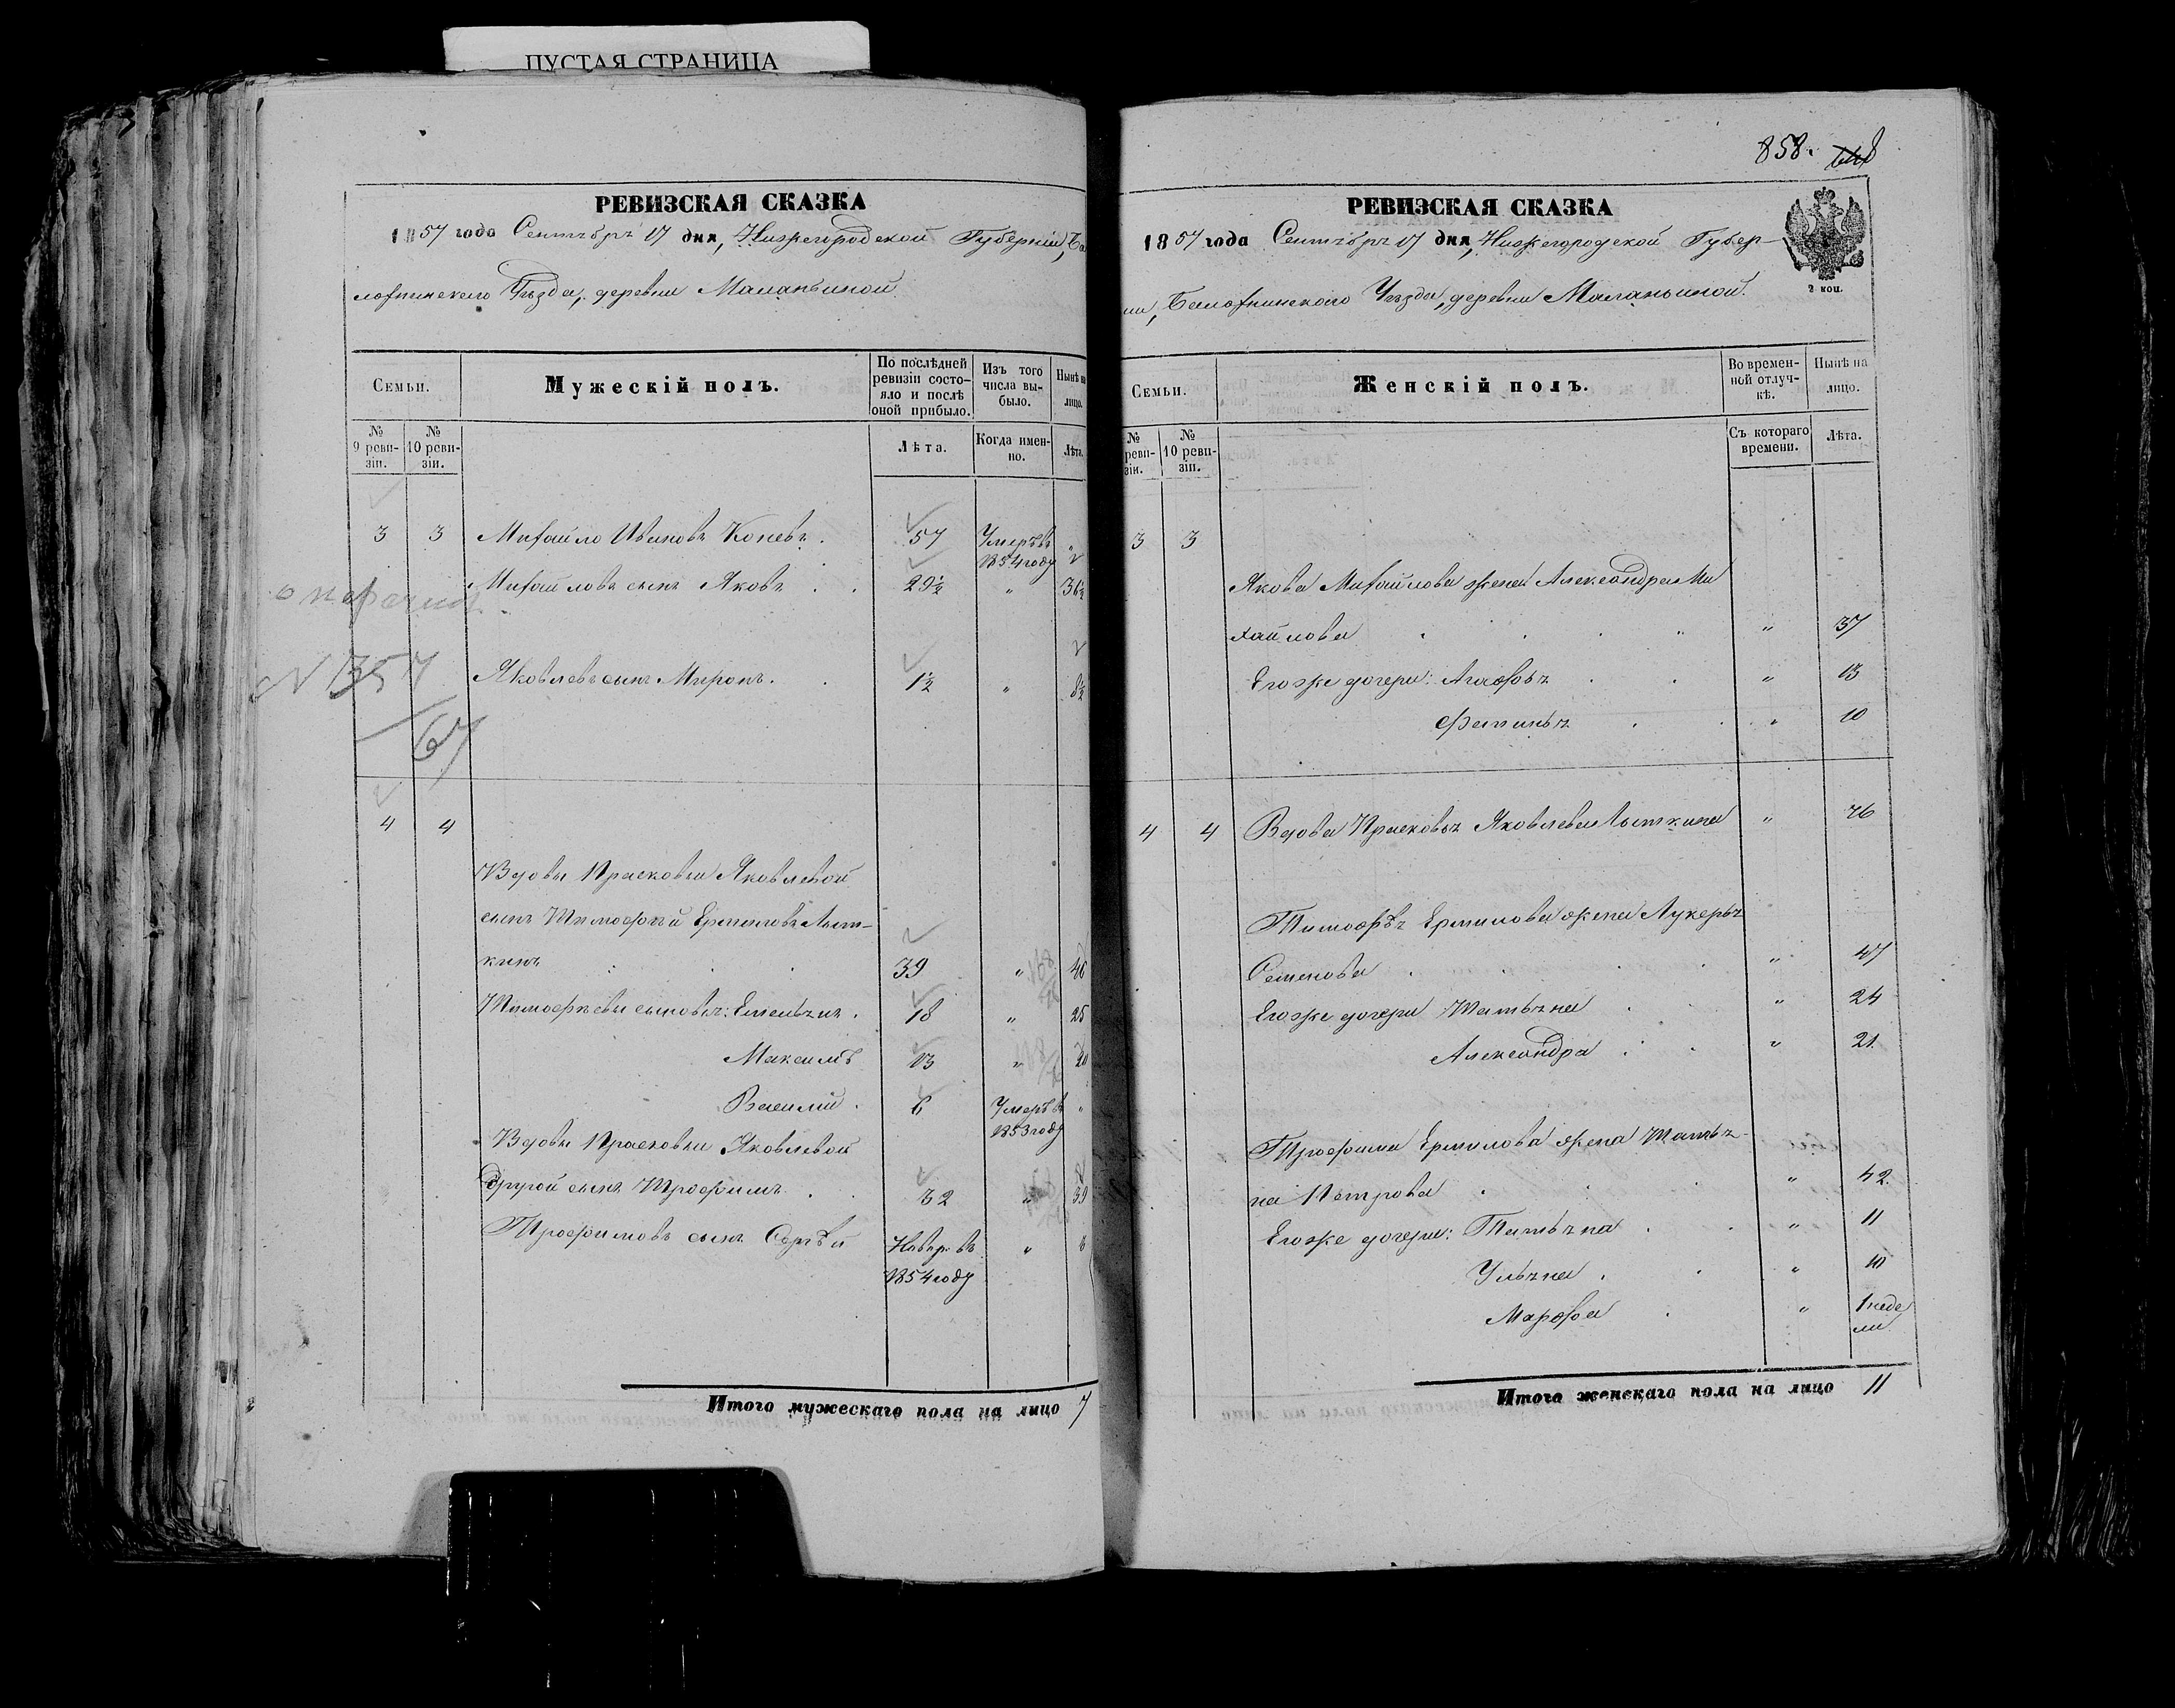 ПУСТАЯ СТРАНИЦА
РЕВИЗСКАЯ СКАЗКА
1857 года Сентября 17 дня, Нижегородской Губерніи, Ба
лахнинскаго Уѣзда, деревни Маланьиной.
Семьи.
Мужескій полъ.
По послѣдней ревизіи состояло и послѣ оной прибыло.
Изъ того числа выбыло.
Нынѣ на лицо.
№ 9 ревизіи.
№ 10 ревизіи.
Лѣта.
Когда именно.
Лѣта.
3 3 Михайло Ивановъ Коневъ. 57 Умеръ въ 1854 году "
Михайловъ сынъ Яковъ 29½ " 36½
N 357
67
Яковлевъ сынъ Миронъ. 1½ " 8½
4 4
Вдовы Прасковьи Яковлевой
сынъ Тимофѣй Ермиловъ Лыт-
кинъ 39 " 46
Тимофѣевы сыновья: Емельянъ. 18 " 25
Максимъ 13 " 20
Василій. 6 Умеръ въ 1853 году "
Вдовы Прасковьи Яковлевой
другой сынъ Трофимъ 32 " 39
Трофимовъ сынъ Сергѣй Новор. въ 1854 году "
Итого мужескаго пола на лицо 7
858.
РЕВИЗСКАЯ СКАЗКА
1857 года Сентября 17 дня, Нижегородской Губер-
ніи, Балахнинскаго Уѣзда, деревни Маланьиной.
2 коп.
Семьи.
Женскій полъ.
Во временной отлучкѣ.
Нынѣ на лицо.
№ реви-зіи.
№ 10 ревизіи.
Съ котораго времени.
Лѣта.
3 3
Якова Михайлова жена Александра Ми
хайлова " 37
Его же дочери: Агафья " 13
Фетинья " 10
4 4 Вдова Прасковья Яковлева Лыткина " 76
Тимофѣя Ермилова жена Лукерья
Семенова " 47
Его же дочери Татьяна " 24
Александра " 21
Трофима Ермилова жена Татья-
на Петрова " 42
Его же дочери: Татьяна " 11
Ульяна " 10
Марфа " 1 неде
ли
Итого женскаго пола на лицо 11